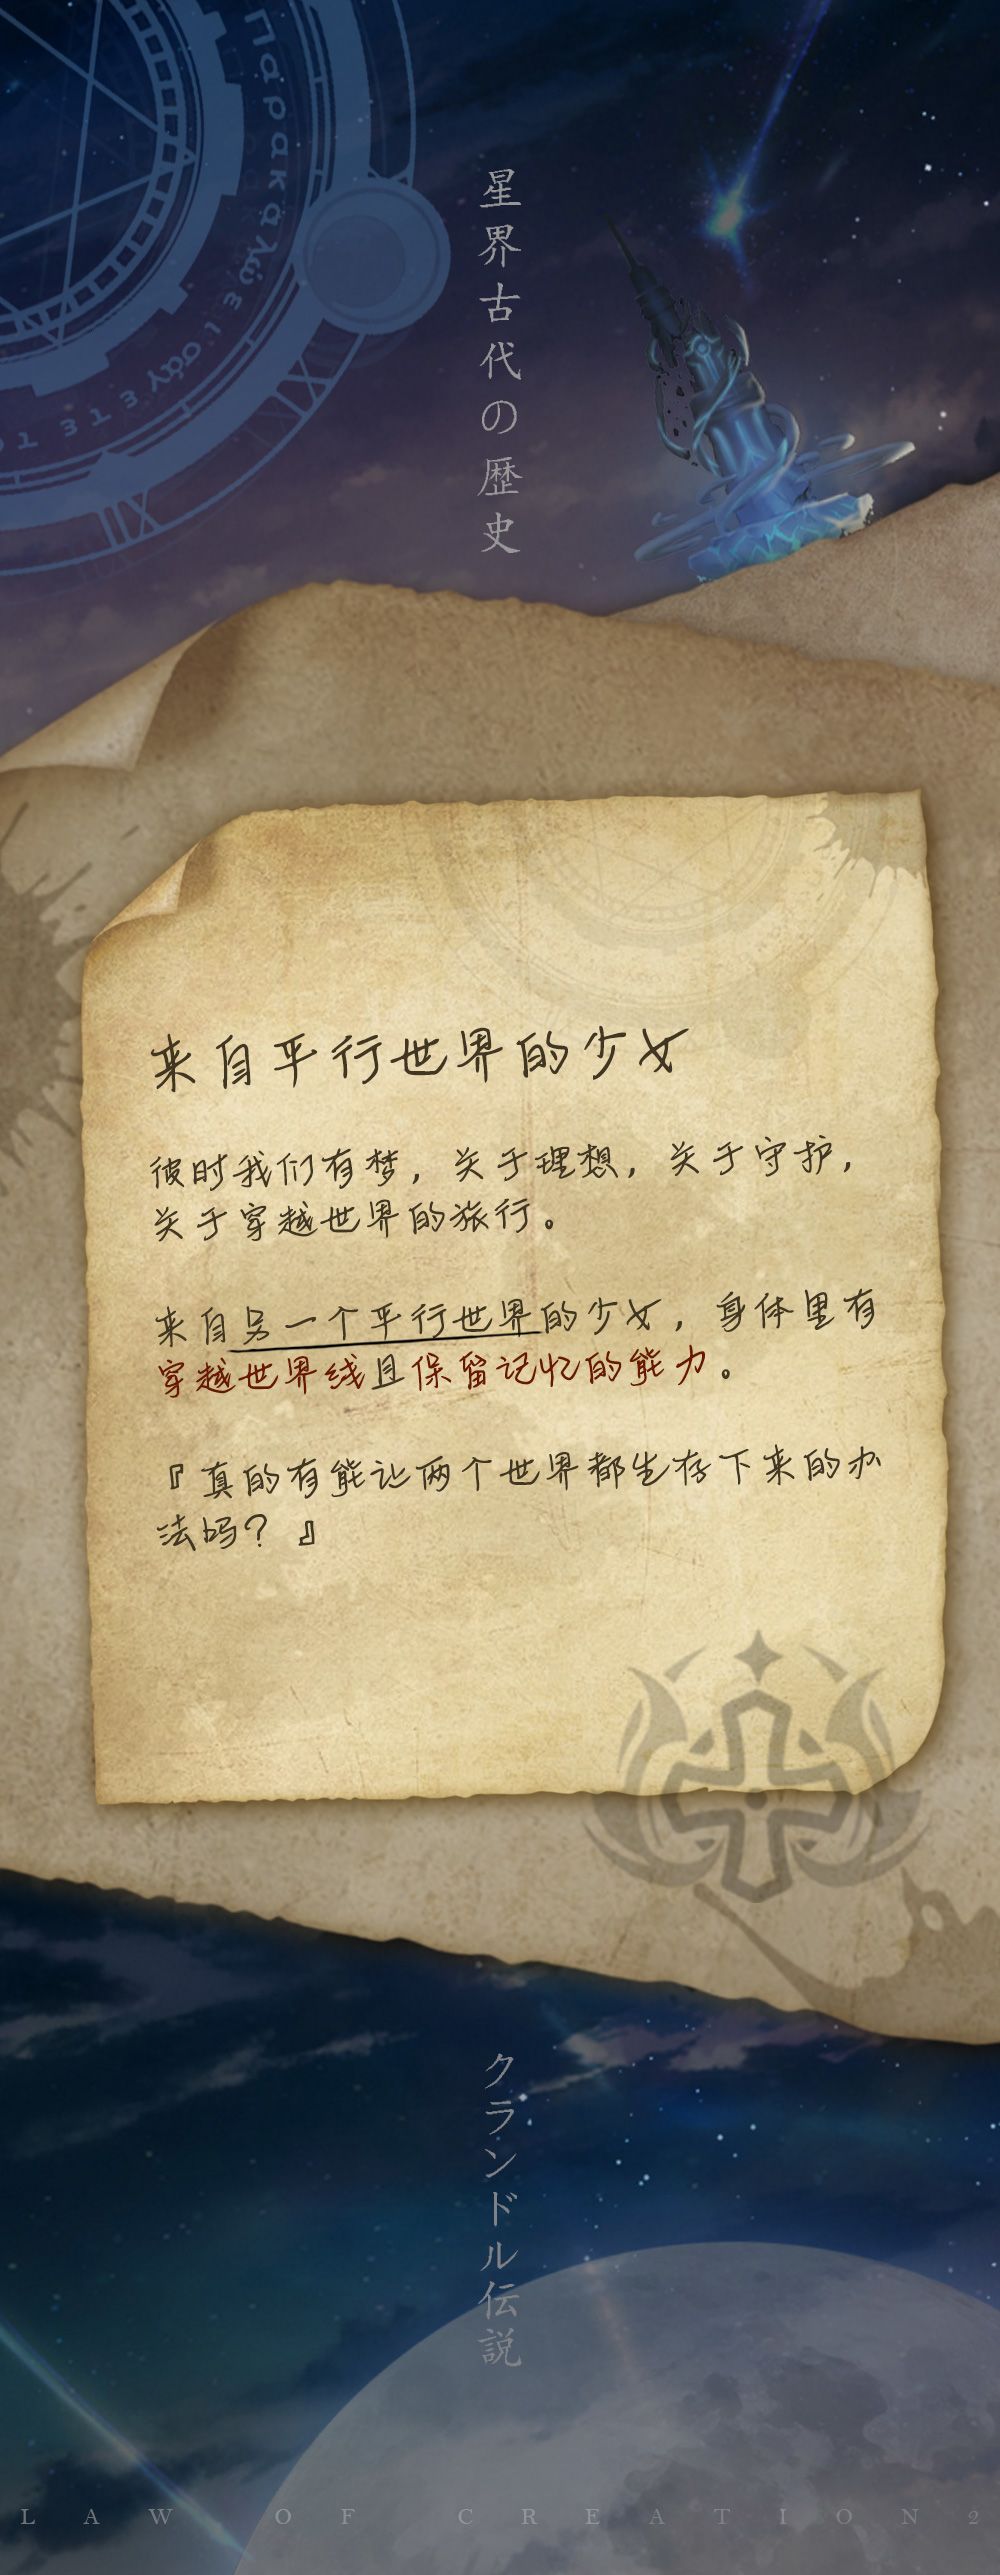 Παρακαλώ εισάγετε το
星界古代の歴史
来自平行世界的少女
彼时我们有梦，关于理想，关于守护，
关于穿越世界的旅行。
来自另一个平行世界的少女，身体里有
穿越世界线且保留记忆的能力。
『真的有能让两个世界都生存下来的办
法吗？』
クランドル伝説
LAW OF CREATION2